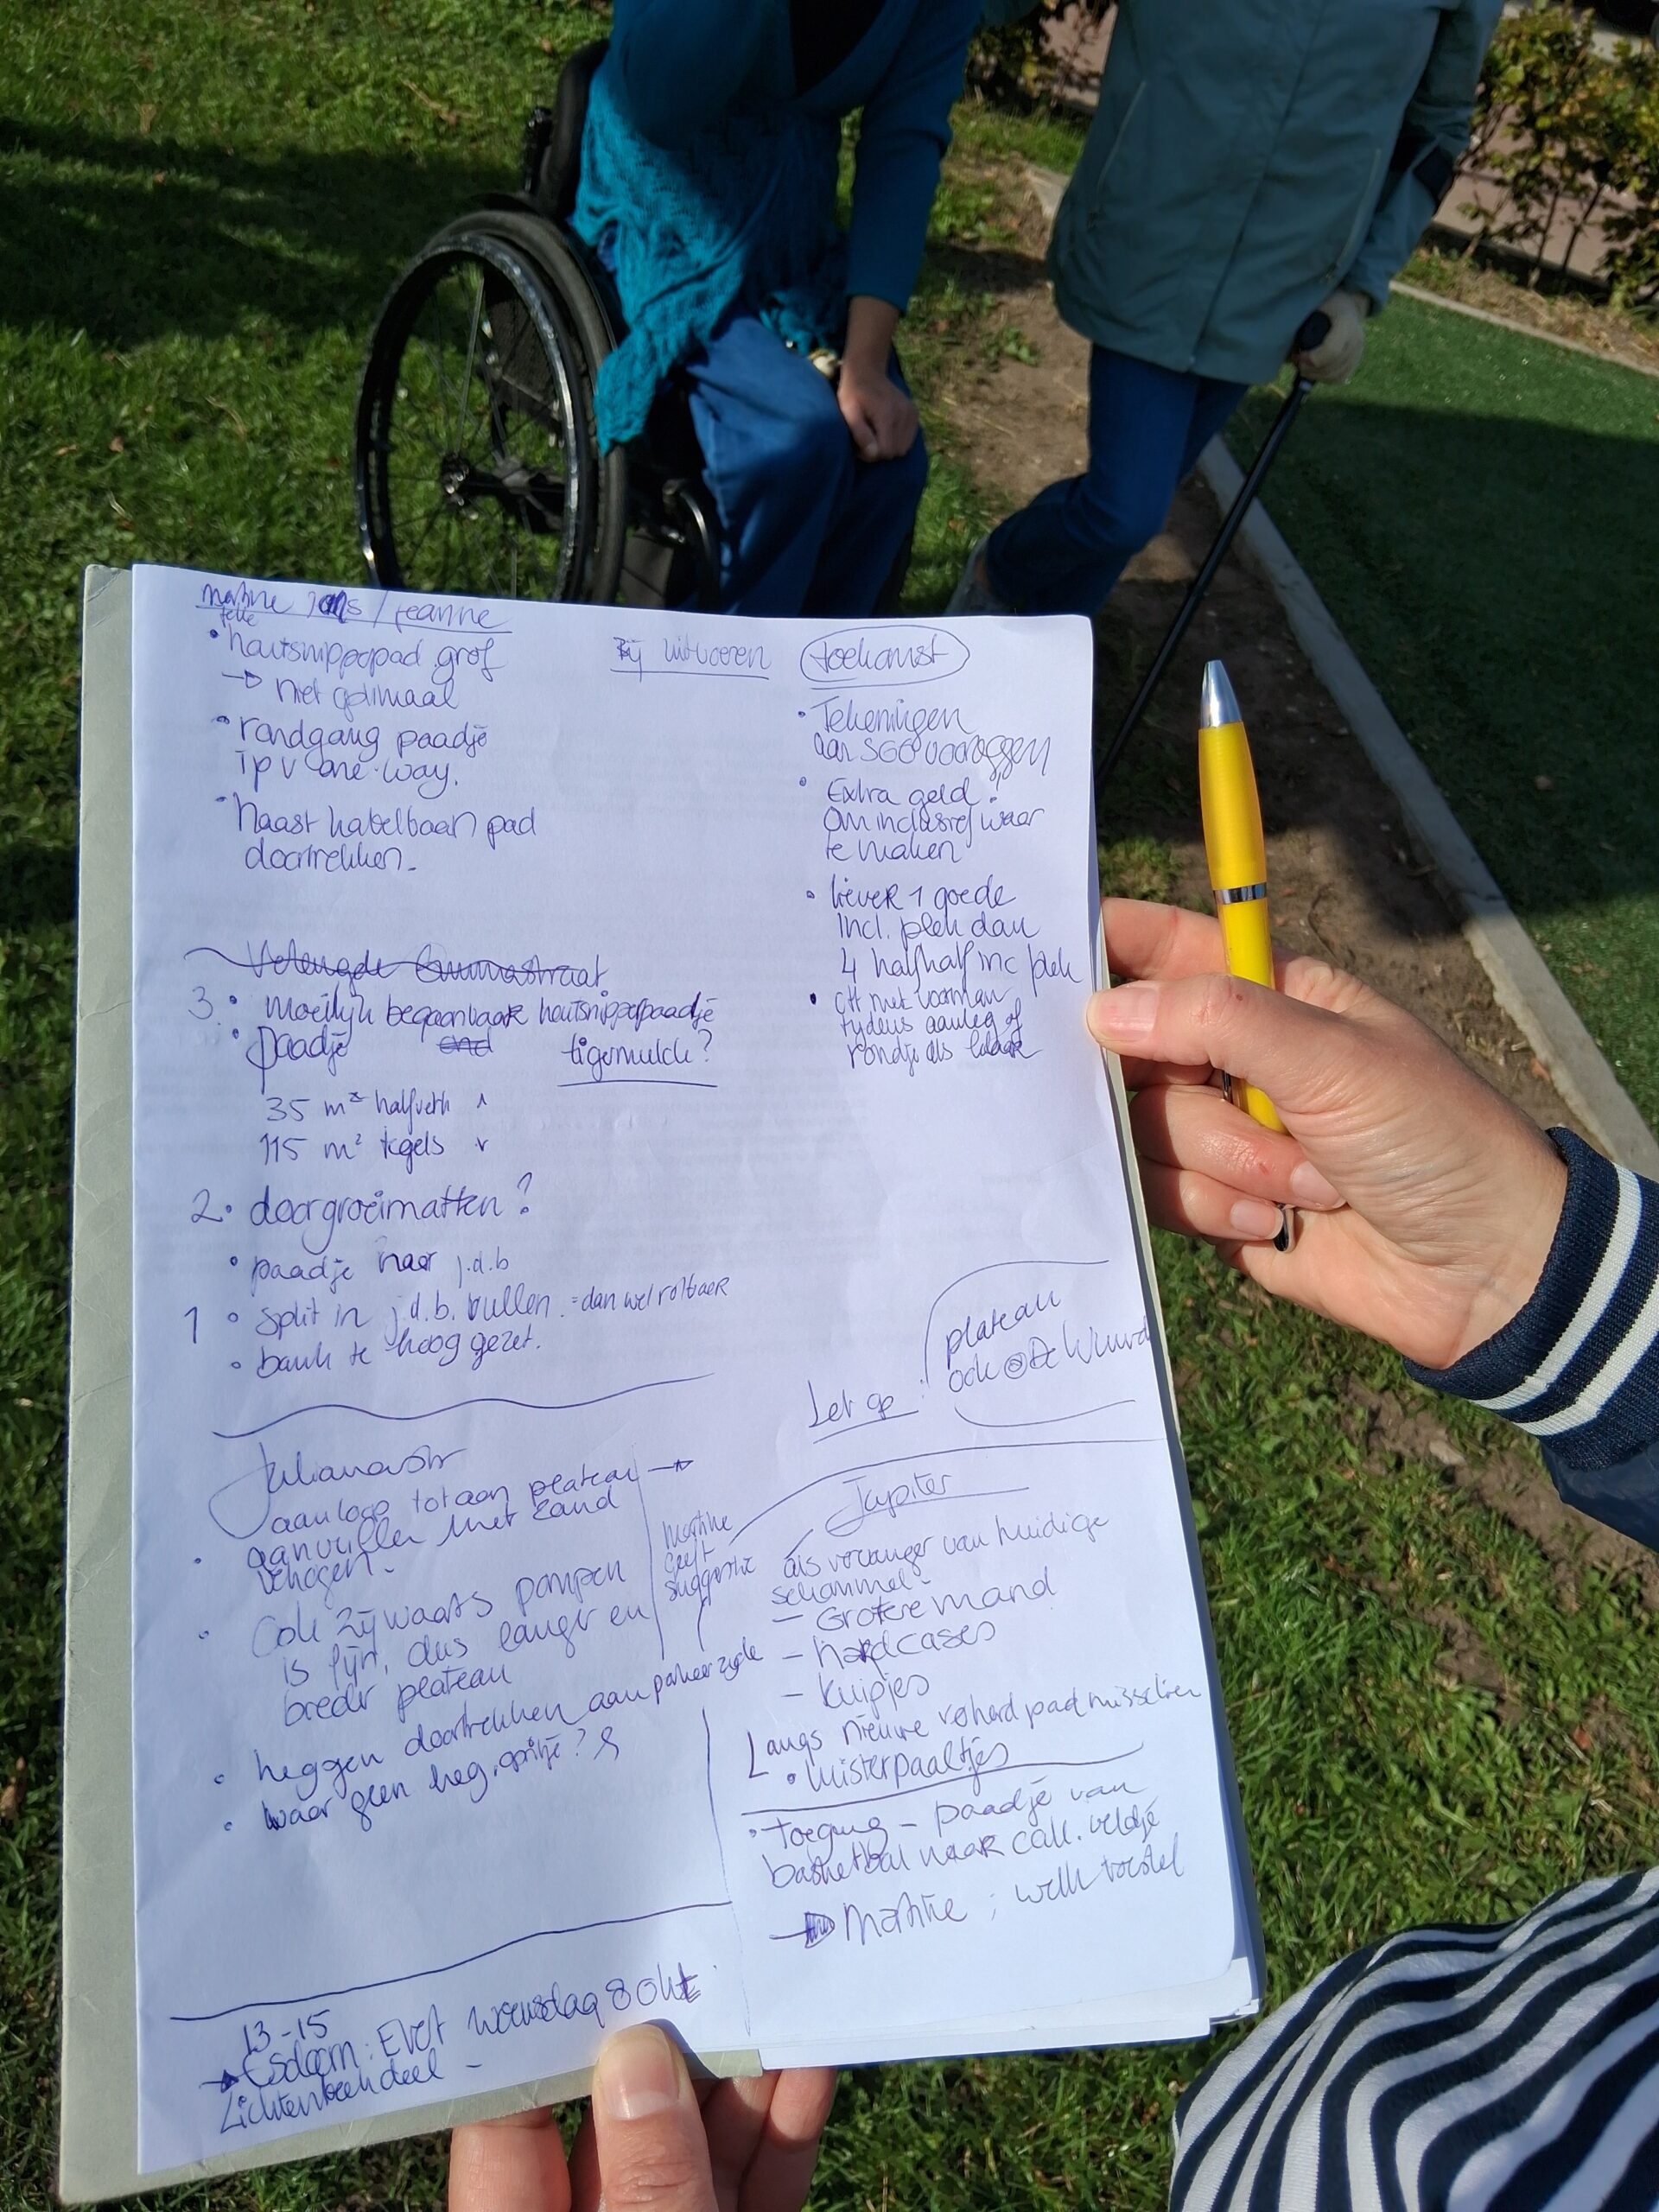 / Jeanne
• houtsnipperpad grof
→ niet optimaal
• rondgang paadje
ipv one-way.
• Naast kabelbaan pad
doortrekken.
Bij uitvoeren
toekomst
• Tekeningen
aan SGO voorleggen
• Extra geld
om inclusief waar
te maken
• liever 1 goede
incl. plek dan
4 halfhalf inc plek
• met voorman
tijdens aanleg of
rondje als klaar
Verlengde Emmastraat
3. • moeilijk begaanbaar houtsnipperpaadje
• paadje tijgermulch?
35 m² halfverh
115 m² tegels
2. • doorgroeimatten?
• paadje naar j.d.b
1 • split in j.d.b. vullen = dan wel rolbaar
• bank te hoog gezet.
Let op:
plateau
ook @ De Wuurd
Julianastr
aanloop tot aan plateau →
• aanvullen met zand
verhogen.
• Ook zijwaarts pompen
is fijn, dus langer en
breder plateau
• heggen doortrekken aan parkeerzijde
• waar geen heg, opritje?
Martine
geeft
suggestie
Jupiter
als vervanger van huidige
schommel
- Grotere mand
- hardcases
- kuipjes
Langs nieuwe verhard pad misschien
• luisterpaaltjes
• toegang - paadje van
basketbal naar call. veldje
→ Martine ; welk toestel
13-15
→ Esdoorn: Evert woensdag 8 okt
Lichtenbeekdeel -